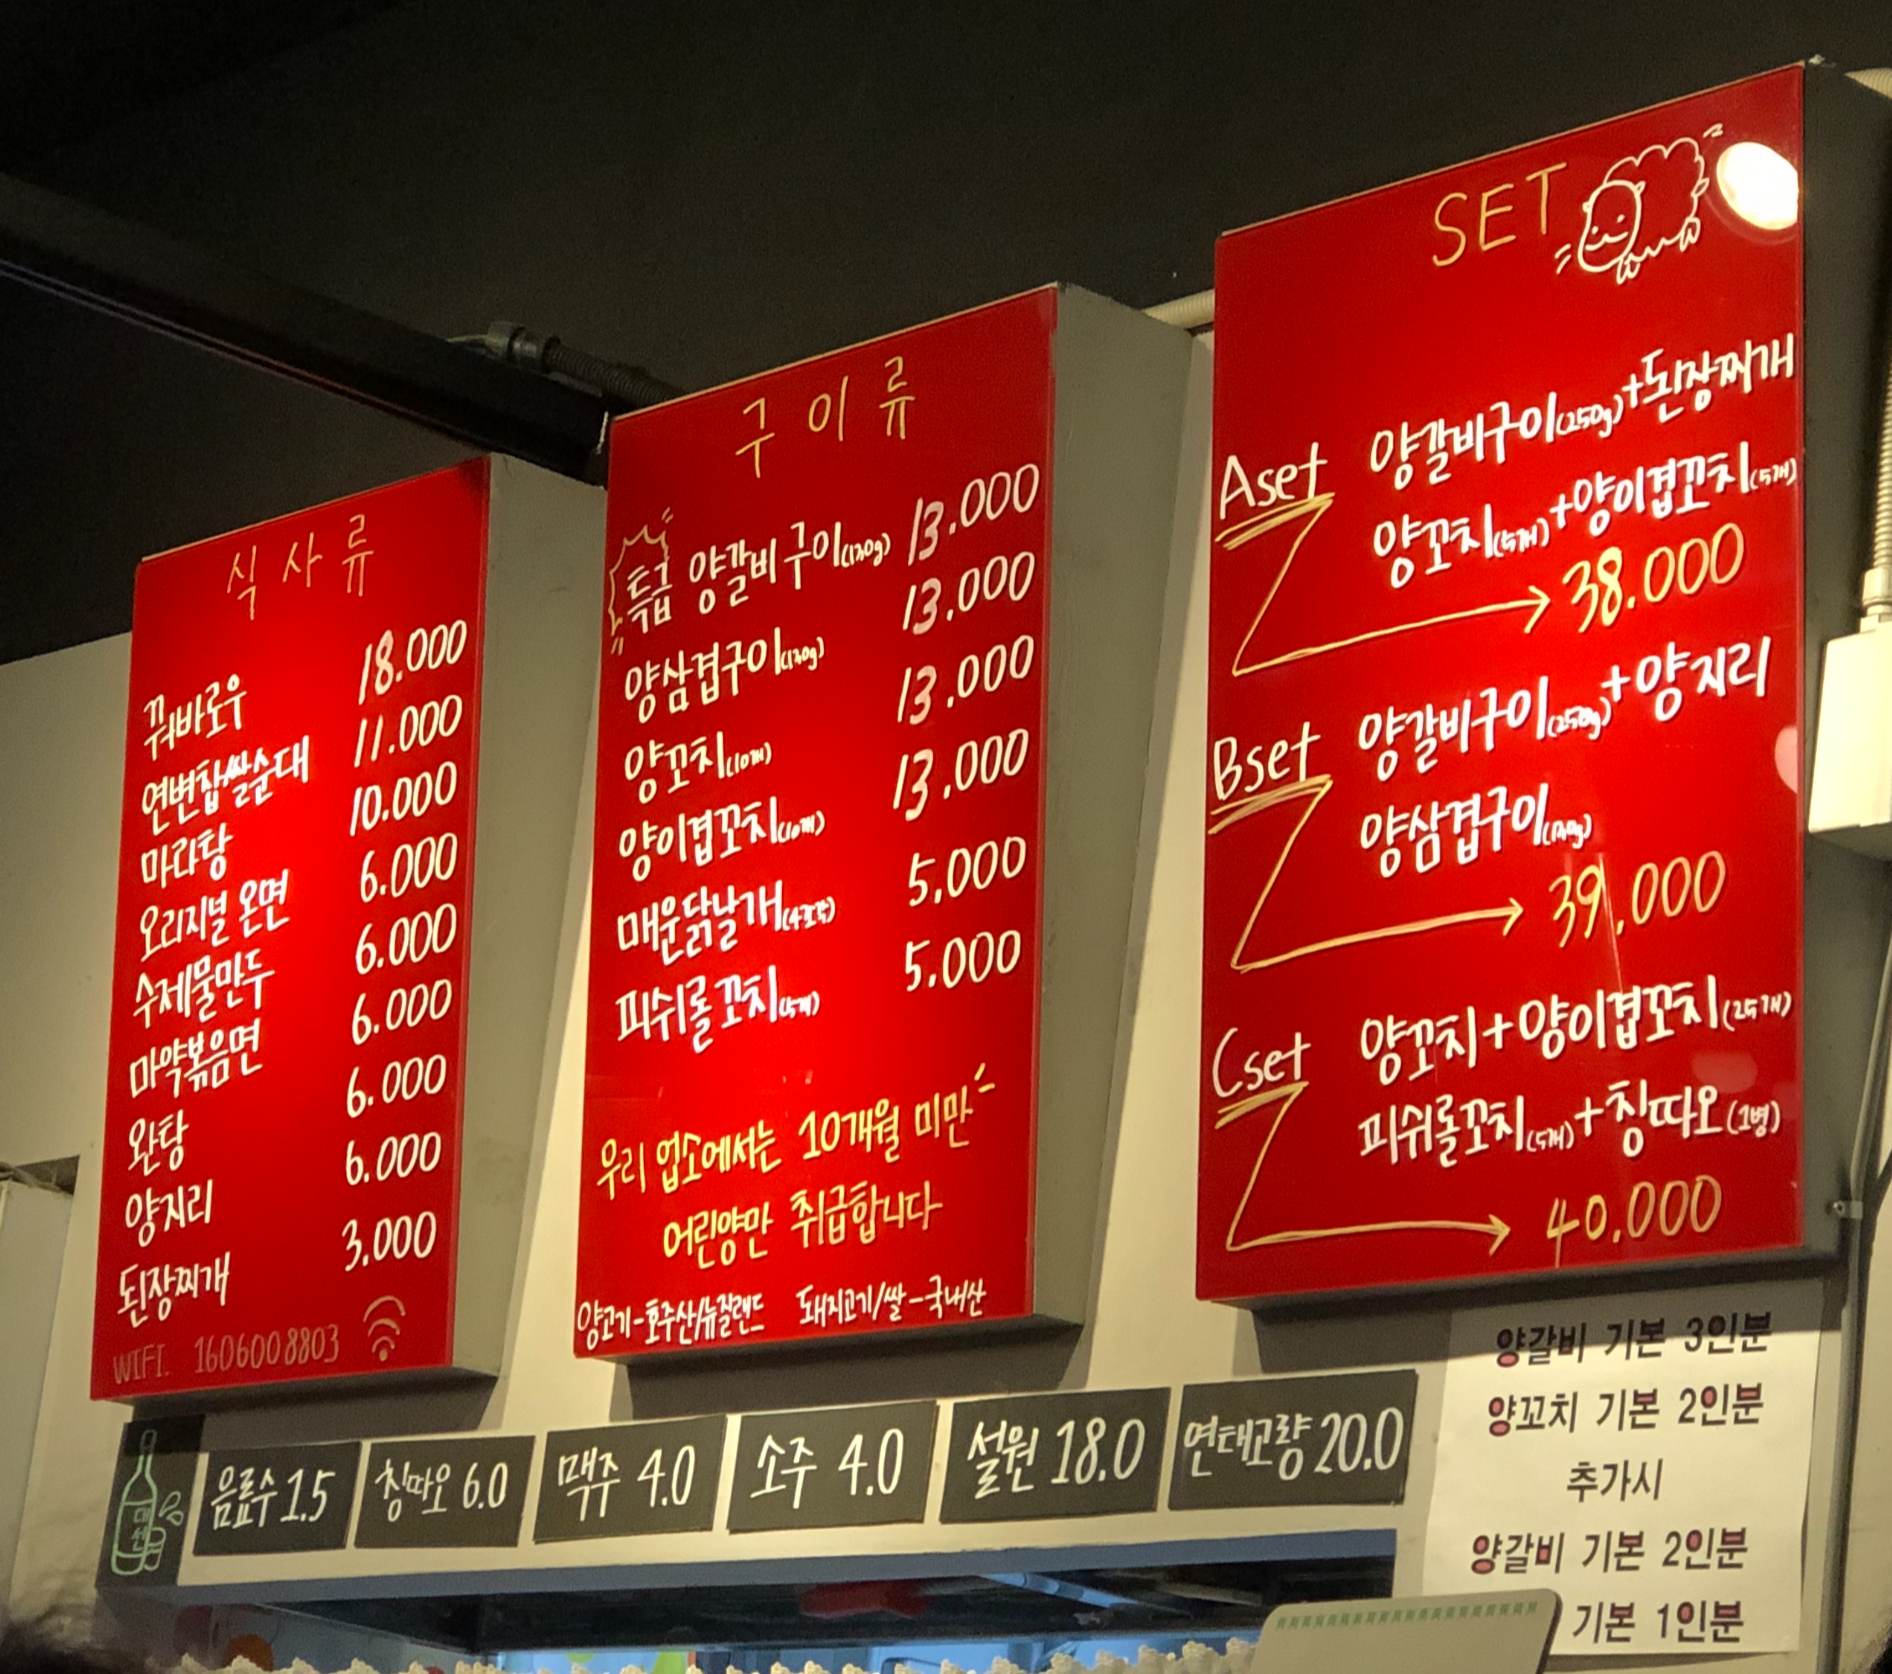 식사류
꿔바로우 18.000
연변찹쌀순대 11.000
마라탕 10.000
오리지널 온면 6.000
수제물만두 6.000
마약볶음면 6.000
완탕 6.000
양지리 6.000
된장찌개 3.000
WIFI. 1606008803
구이류
특급 양갈비구이(130g) 13.000
양삼겹구이(130g) 13.000
양꼬치(10개) 13.000
양이겹꼬치(10개) 13.000
매운닭날개(4조각) 5.000
피쉬롤꼬치(5개) 5.000
우리 업소에서는 10개월 미만
어린양만 취급합니다
양고기-호주산/뉴질랜드 돼지고기/쌀-국내산
SET
Aset 양갈비구이(250g)+된장찌개
양꼬치(5개)+양이겹꼬치(5개)
38.000
Bset 양갈비구이(250g)+양지리
양삼겹구이(130g)
39,000
Cset 양꼬치+양이겹꼬치(25개)
피쉬롤꼬치(5개)+칭따오(1병)
40.000
대선
음료수 1.5
칭따오 6.0
맥주 4.0
소주 4.0
설원 18.0
연태고량 20.0
양갈비 기본 3인분
양꼬치 기본 2인분
추가시
양갈비 기본 2인분
기본 1인분